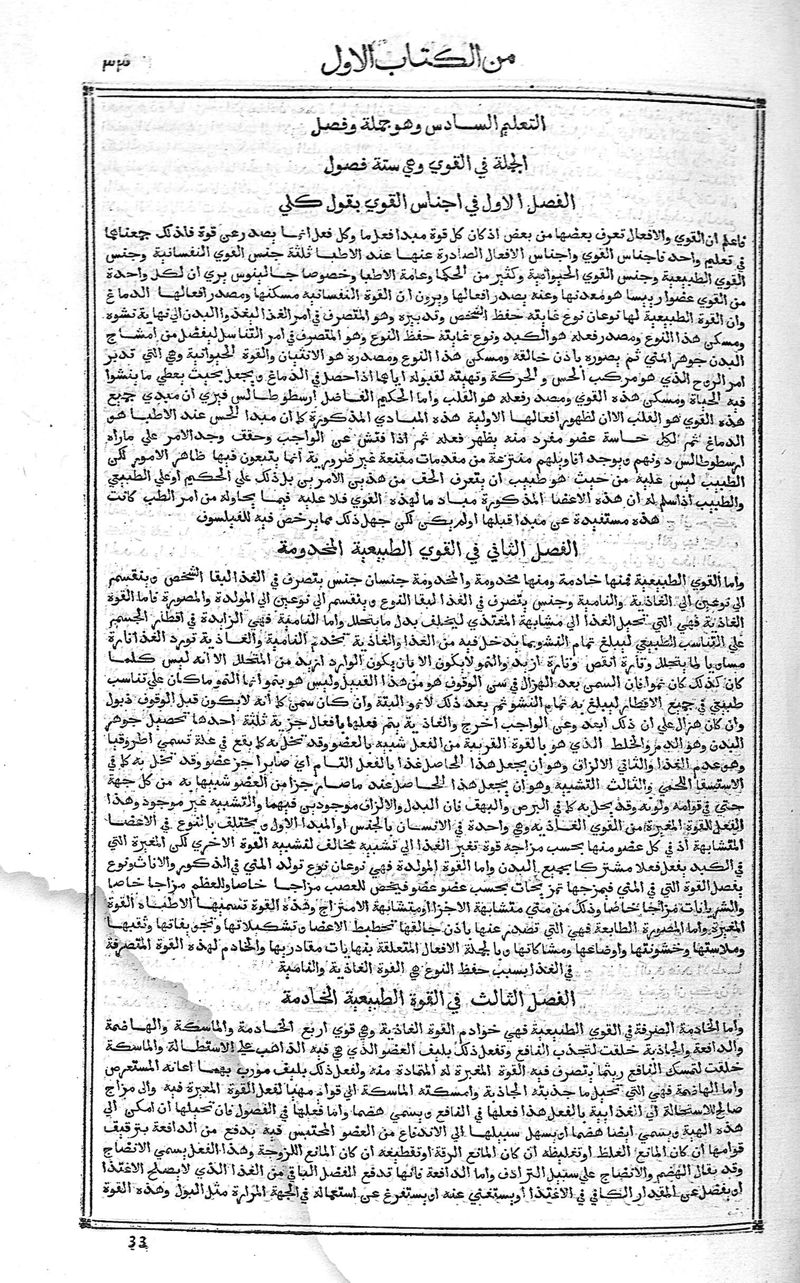 من الكتاب الاول
٣٣
التعليم السادس وهو جملة وفصل
الجملة في القوي وهي ستة فصول
الفصل الاول في اجناس القوي بقول كلي
فاعلم ان القوي والافعال تعرف بعضها من بعض اذ كان كل قوة مبدا فعل ما وكل فعل انما يصدر عن قوة فلذلك جمعناهما
في تعليم واحد فاجناس القوي واجناس الافعال الصادرة عنها عند الاطبا ثلثة جنس القوي النفسانية وجنس
القوي الطبيعية وجنس القوي الحيوانية وكثير من الحكما وعامة الاطبا وخصوصا جالينوس يري ان لكل واحدة
من القوي عضوا رييسا هو معدنها وعنه يصدر افعالها ويرون ان القوة النفسانية مسكنها ومصدر افعالها الدماغ
وان القوة الطبيعية لها نوعان نوع غايته حفظ الشخص وتدبيره وهو المتصرف في امر الغذا ليغذوا البدن الي نهاية نشوه
ومسكن هذا النوع ومصدر فعله هو الكبد ونوع غايته حفظ النوع وهو المتصرف في امر التناسل ليفصل من امشاج
البدن جوهر المني ثم يصوره باذن خالقه ومسكن هذا النوع ومصدره هو الانثيان والقوة الحيوانية وهي التي تدبر
امر الروح الذي هو مركب الحس والحركة وتهيئه لقبوله اياهما اذا حصل في الدماغ ويجعل بحيث يعطي ما يفشوا
فيه الحياة ومسكن هذه القوي ومصدر فعله هو القلب واما الحكيم الفاضل ارسطوطالس فيري ان مبدي جميع
هذه القوي هو القلب الا ان لظهور افعالها الاولية هذه المبادي المذكورة كما ان مبدا الحس عند الاطبا هو
الدماغ ثم لكل حاسة عضو مفرد منه يظهر فعله ثم اذا فتش عن الواجب وحقق وجد الامر علي ماراه
ارسطوطالس دونهم ويوجد اقاويلهم منتزعة من مقدمات مقنعة غير ضرورية انما يتبعون فيها ظاهر الامور لكن
الطبيب ليس عليه من حيث هو طبيب ان يتعرف الحق من هذين الامرين بل ذلك علي الحكيم او علي الطبيعي
والطبيب اذا سلم له ان هذه الاعضا المذكورة مباد ما لهذه القوي فلا عليه فيما يحاوله من امر الطب كانت
هذه مستفيدة عن مبدا قبلها او لم يكن لكن جهل ذلك مما يرخص فيه للفيلسوف
الفصل الثاني في القوي الطبيعية المخدومة
واما القوي الطبيعية فمنها خادمة ومنها مخدومة والمخدومة جنسان جنس يتصرف في الغذا لبقا الشخص وينقسم
الي نوعين الي الغاذية والنامية وجنس يتصرف في الغذا لبقا النوع وينقسم الي نوعين الي المولدة والمصورة فاما القوة
الغاذية فهي التي تحيل الغذا الي مشابهة المغتذي ليخلف بدل ما يتحلل واما النامية فهي الزايدة في اقطار الجسم
علي التناسب الطبيعي ليبلغ تمام النشو بما يدخل فيه من الغذا والغاذية تخدم النامية والغاذية تورد الغذا تارة
مساويا لما يتحلل وتارة انقص وتارة ازيد والنمو لا يكون الا بان يكون الوارد ازيد من المتحلل الا انه ليس كلما
كان كذلك كان نموا فان السمن بعد الهزال في سن الوقوف هو من هذا القبيل وليس هو بنمو انما النمو ما كان علي تناسب
طبيعي في جميع الاقطار ليبلغ به تمام النشو ثم بعد ذلك لا نمو البتة وان كان سمن كما انه لا يكون قبل الوقوف ذبول
وان كان هزال علي ان ذلك ابعد وعن الواجب اخرج والغاذية يتم فعلها بافعال جزية ثلثة احدها تحصيل جوهر
البدن وهو الدم والخلط الذي هو بالقوة القريبة من الفعل شبيه بالعضو وقد تخل به كما يقع في علة تسمي اطروفيا
وهو عدم الغذا والثاني الالزاق وهو ان يجعل هذا الحاصل غذا بالفعل التام اي صايرا جز عضو وقد تخل به كما في
الاستسقا اللحمي والثالث التشبيه وهو ان يجعل هذا الحاصل عند ما صار جزا من العضو شبيها به من كل جهة
حتي في قوامه ولونه وقد يخل به كما في البرص والبهق فان البدل والالزاق موجودين فيهما والتشبيه غير موجود وهذا
الفعل للقوة المغيرة من القوي الغاذية وهي واحدة في الانسان بالجنس او المبدا الاول ويختلف بالنوع في الاعضا
المتشابهة اذ في كل عضو منها بحسب مزاجه قوة تغير الغذا الي تشبيه مخالف لتشبيه القوة الاخري لكن المغيرة التي
في الكبد يفعل فعلا مشتركا بجميع البدن واما القوة المولدة فهي نوعان نوع تولد المني في الذكور والاناث ونوع
يفصل القوة التي في المني فيمزجها تمزيجات بحسب عضو عضو فيخص للعصب مزاجا خاصا وللعظم مزاجا خاصا
والشريانات مزاجا خاصا وذلك من مني متشابهة الاجزا او متشابهة الامتزاج وهذه القوة تسميها الاطبا القوة
المغيرة واما المصورة الطابعة فهي التي تصدر عنها باذن خالقها تخطيط الاعضا وتشكيلاتها وتجويفاتها وثقبها
وملاستها وخشونتها واوضاعها ومشاكلتها وبالجملة الافعال المتعلقة بنهايات مقاديرها والخادم لهذه القوة المتصرفة
في الغذا بسبب حفظ النوع هي القوة الغاذية والنامية
الفصل الثالث في القوة الطبيعية الخادمة
واما الخادمة الصرفة في القوي الطبيعية فهي خوادم القوة الغاذية وهي قوي اربع الخادمة والماسكة والهاضمة
والدافعة والجاذبة خلقت لتجذب النافع وتفعل ذلك بليف العضو الذي هي فيه الذاهب علي الاستطالة والماسكة
خلقت لتمسك النافع ريثما يتصرف فيه القوة المغيرة له الممتادة منه ولفعل ذلك بليف مورب بهما اعانه المستعرض
واما الهاضمة فهي التي تحيل ما جذبته الجاذبة وامسكته الماسكة الي قوام مهيا لفعل القوة المغيرة فيه والي مزاج
صالح للاستحالة الي الغذايية بالفعل هذا فعلها في النافع ويسمي هضما واما فعلها في الفضول فان تحيلها ان امكن الي
هذه الهية ويسمي ايضا هضما او يسهل سبيلها الي الاندفاع من العضو المحتبس فيه بدفع من الدافعة بترقيق
قوامها ان كان المانع الغلظ او تغليظه ان كان المانع الرقة او تقطيعه ان كان المانع اللزوجة وهذا الفعل يسمي الانضاج
وقد يقال الهضم والانضاج علي سبيل الترادف واما الدافعة فانها تدفع الفضل الباقي من الغذا الذي لا يصلح الاغتذا
او يفضل عن المقدار الكافي في الاغتذا او يستغني عنه او يستفرغ عن استعماله في الجهة المرارة مثل البول وهذه القوة
33